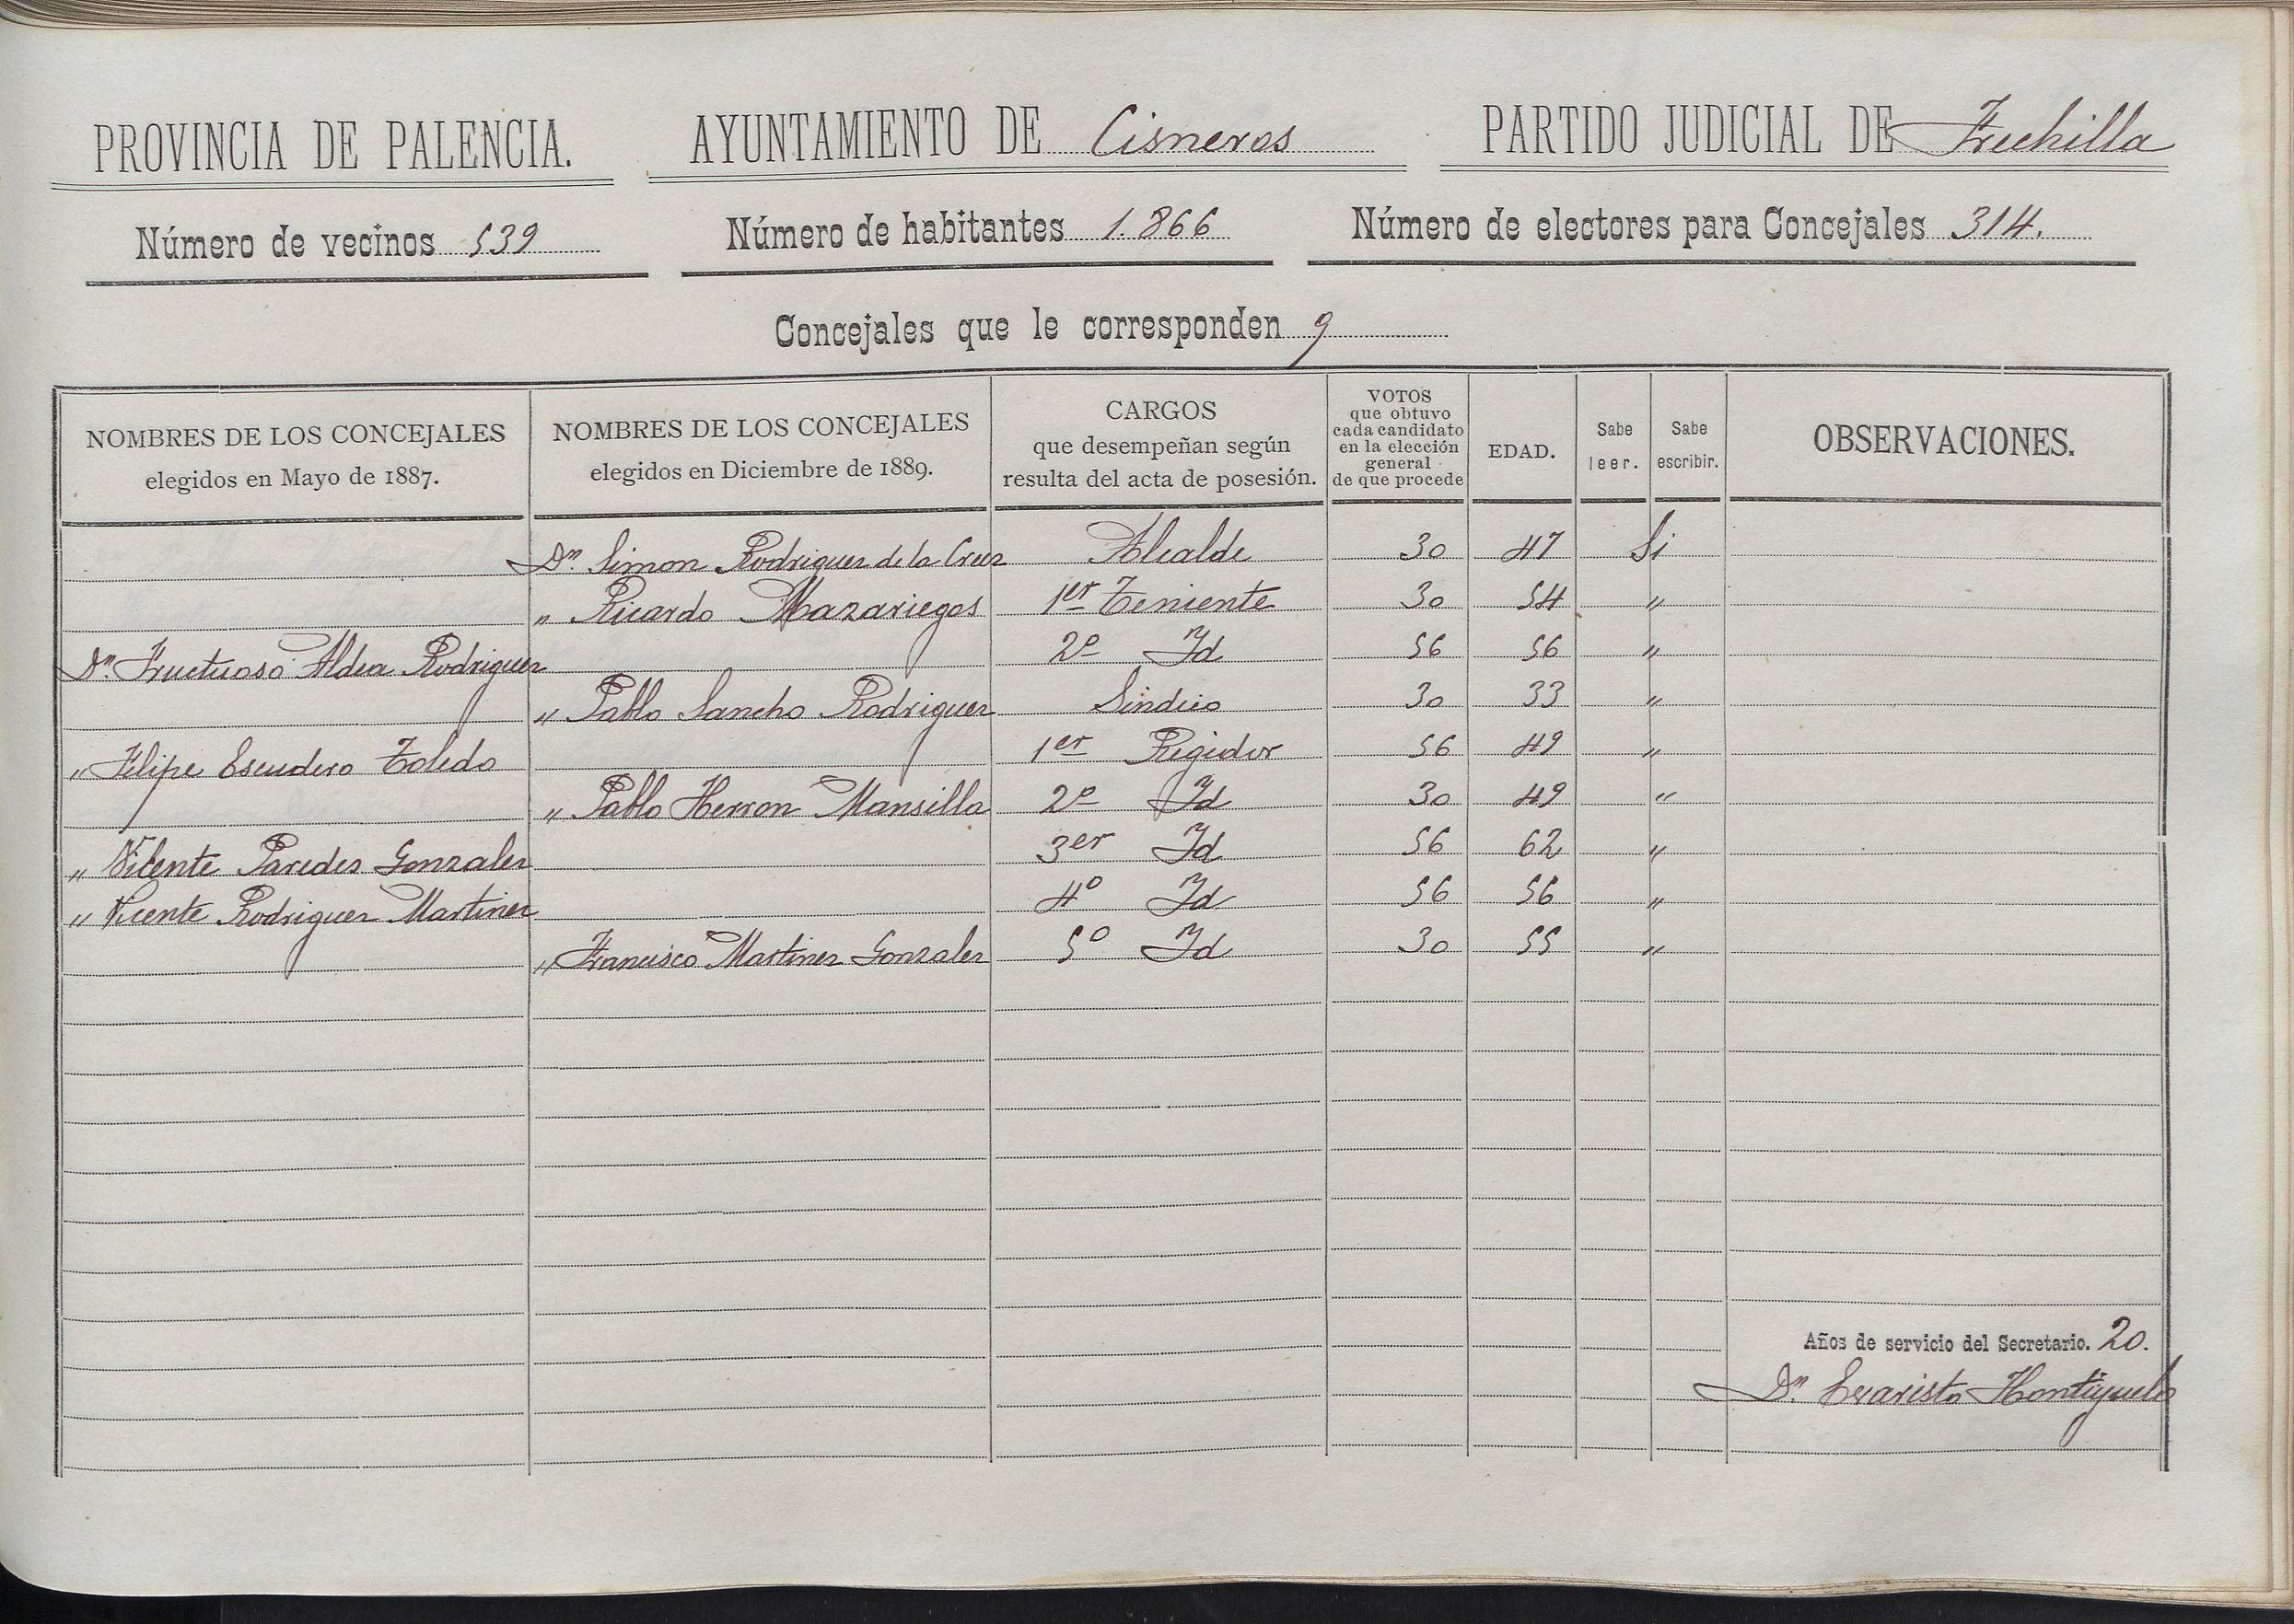 PROVINCIA DE PALENCIA. AYUNTAMIENTO DE Cisneros PARTIDO JUDICIAL DE Frechilla
Número de vecinos 539 Número de habitantes 1.866 Número de electores para Concejales 314.
Concejales que le corresponden 9
NOMBRES DE LOS CONCEJALES
elegidos en Mayo de 1887.
NOMBRES DE LOS CONCEJALES
elegidos en Diciembre de 1889.
CARGOS
que desempeñan según
resulta del acta de posesión.
VOTOS
que obtuvo
cada candidato
en la elección
general
de que procede
EDAD.
Sabe
leer.
Sabe
escribir.
OBSERVACIONES.
Dn. Simon Rodriguez de la Cruz Alcalde 30 47 Si
" Ricardo Mazariegos 1er Teniente 30 54 "
Dn. Fructuoso Aldea Rodriguez 2º Id 56 56 "
" Pablo Sancho Rodriguez Sindico 30 33 "
" Felipe Escudero Toledo 1er Regidor 56 49 "
" Pablo Herron Mansilla 2º Id 30 49 "
" Vicente Paredes Gonzalez 3er Id 56 62 "
" Vicente Rodriguez Martinez 4º Id 56 56 "
" Francisco Martinez Gonzalez 5º Id 30 55 "
Años de servicio del Secretario. 20.
Dn. Evaristo Hontiyuelo